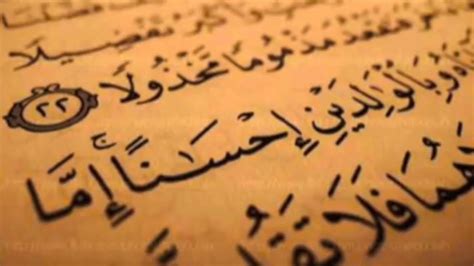 وَأَكْبَرُ تَفْضِيلًا
فَتَقْعُدَ مَذْمُومًا مَّخْذُولًا ٢٢
وَبِالْوَٰلِدَيْنِ إِحْسَٰنًا إِمَّا
هُمَا فَلَا تَقُل